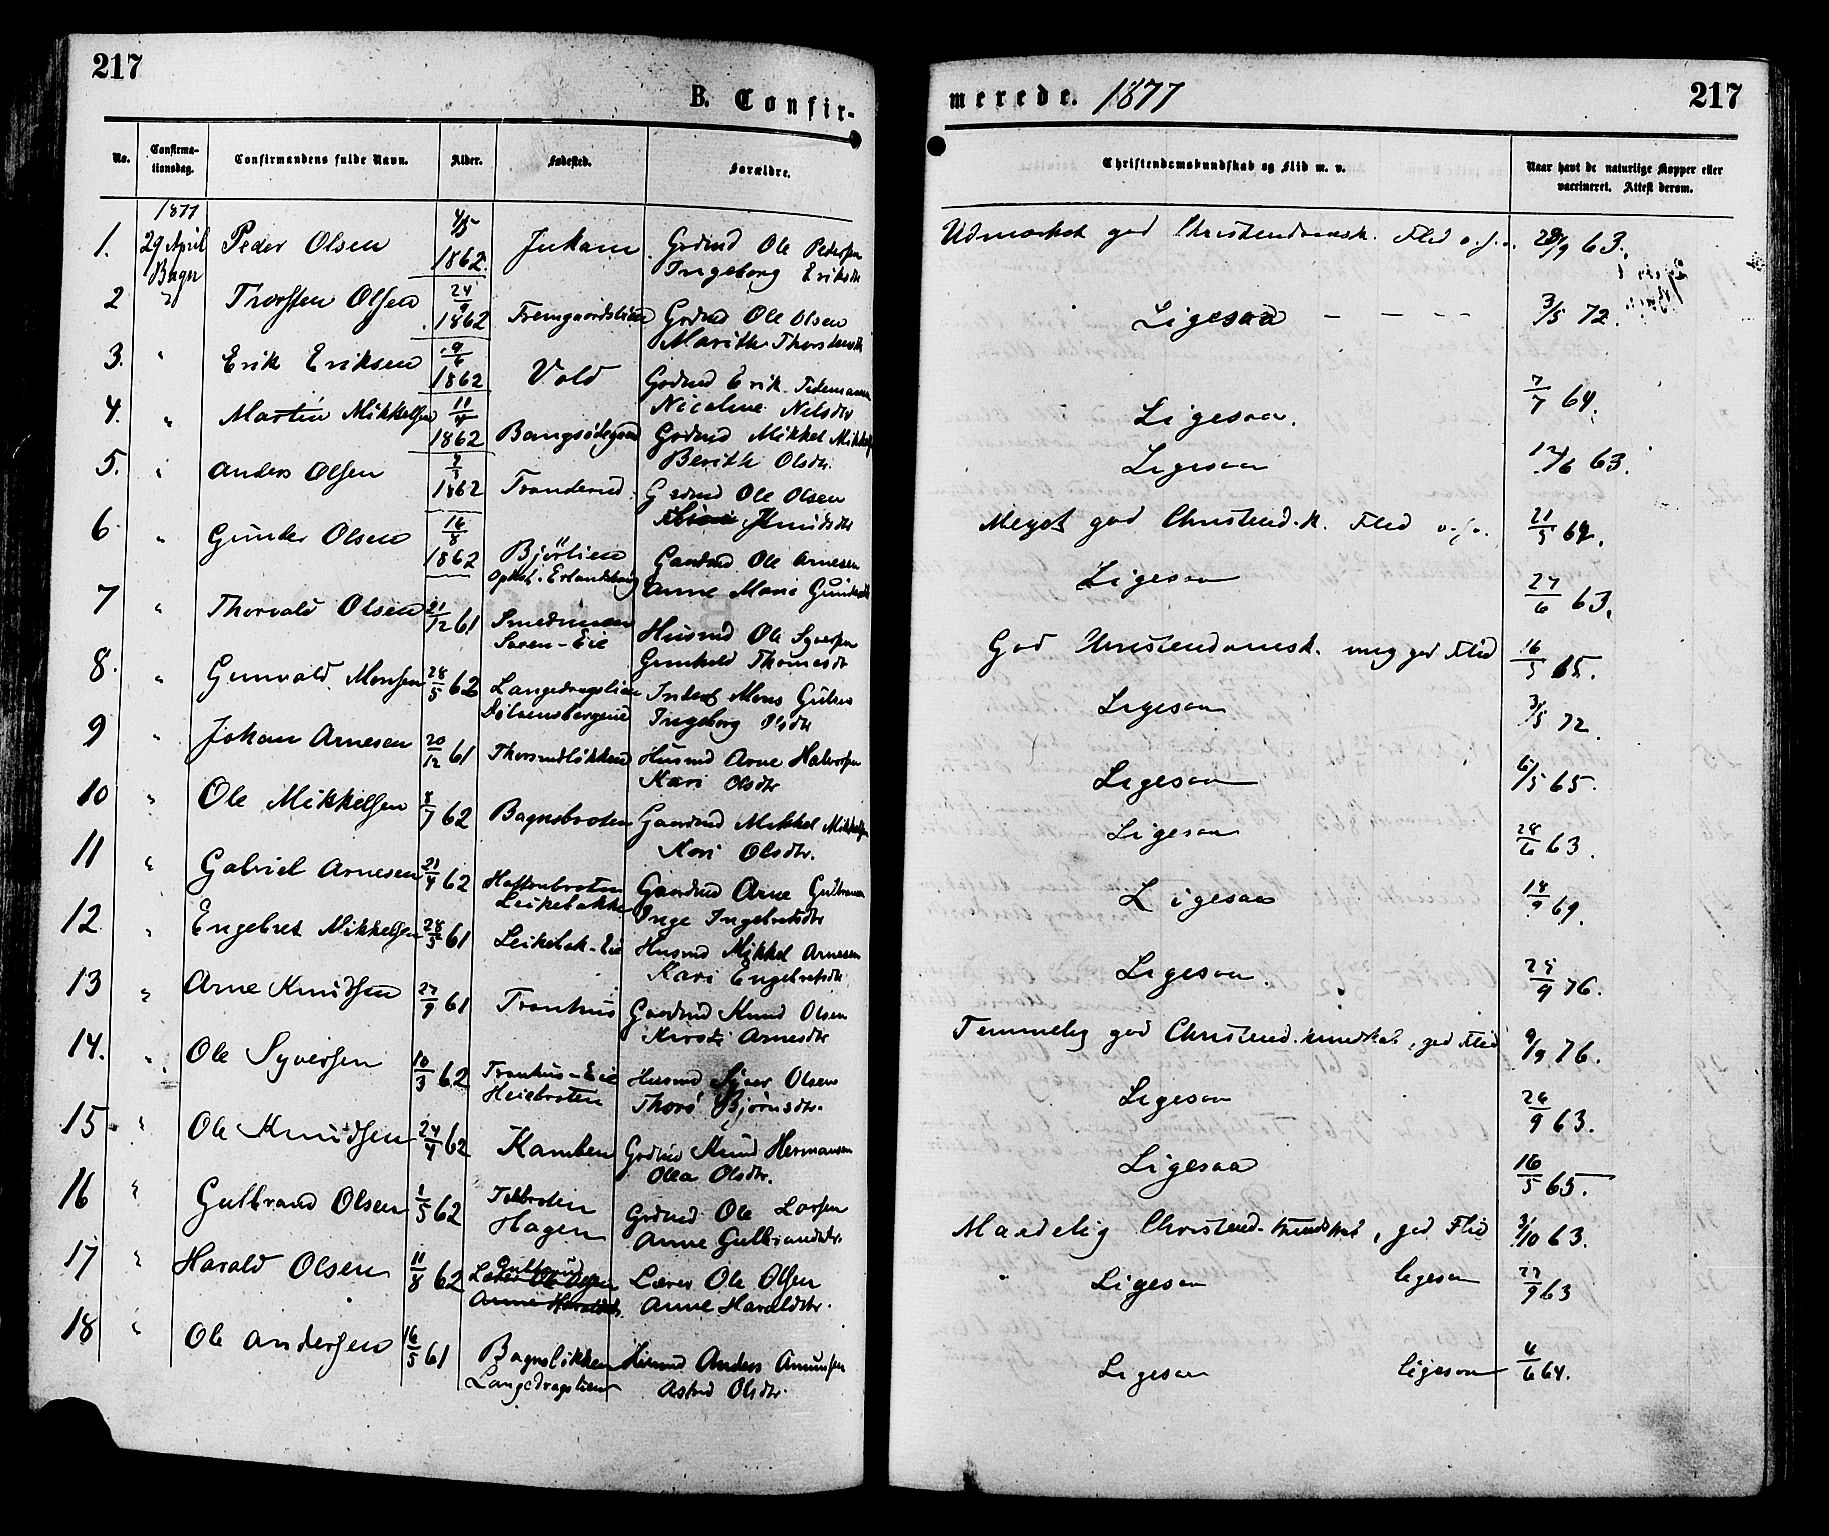 217
B. Confir-
No.
Confirma-
tionsdag.
Confirmandens fulde Navn.
Alder.
Fødested.
Forældre.
1877
1. 29 April Peder Olsen 4/5 1862. Grdmd Ole Pedersen
Bagn Ingeborg Eriksdtr
2 " Thorsten Olsen 24/9 1862 Grdmd Ole Olsen
Marith Thorstensdtr
3. " Erik Eriksen 9/6 1862 Vold Grdmd Erik Tidemansen
Nicoline Nilsdtr
4. " Martin Mikkelsen 11/4 1862 Grdmd Mikkel Mikkels
Berith Olsdtr.
5. " Anders Olsen 1862 Tronderud. Grdmd Ole Olsen
Knudsdtr
6 " Gunder Olsen 16/8 1862 Bjørlien Gaardmd Ole Arnesen
Anne Marie
7 " Thorvald Olsen 21/12 61 Husmd Ole Syversen
Eie Gunhild Thomesdtr
8. " Gunvald Monsen 28/5 62 Langedragslien Inderst Mons
Ingeborg Olsdtr
9 " Johan Arnesen 20/12 61 Husmd Arne Halvorsen
Kari Olsdtr
10 " Ole Mikkelsen 8/7 62 Bagnsbroten Gaardmd Mikkel Mikkelsen
Kari Olsdtr.
11 " Gabriel Arnesen 21/4 62 Gaardmd Arne
Leikebakke Inge Ingebretsdtr
12 " Engebret Mikkelsen 28/5 61 Leikebak-Eie Husmd Mikkel Arnesen
Kari Engebretsdtr
13 " Arne Knudsen 27/9 61 Tronhus Gaardmd Knud Olsen
Kirsti Arnesdtr
14. " Ole Syversen 10/3 62 Tronhus-Eie Husmd Syver Olsen
Heiebroten Thorø Bjørnsdtr.
15 " Ole Knudsen 24/4 62 Kamben Grdmd Knud Hermansen
Olea Olsdtr.
16 " Gulbrand Olsen 1/5 62 Grdmd Ole Larsen
Hagen Anne Gulbrandsdtr.
17 " Harald Olsen 11/8 62 Lærer Ole Olsen
Anne Haraldsdtr.
18 " Ole Andersen 16/5 61 Bagnsløkken Husmd Anders Amundsen
Langedragslien Astrid Olsdtr.
merede. 1877
217
Christendomskundskab og Flid m. v.
Naar havt de naturlige Kopper eller
vaccineret. Attest derom.
Udmærket god Christendomsk. Flid o.s.v. 63.
Ligesaa - - - - 3/5 72.
Ligesaa. 7/7 64.
Ligesaa 63.
Meget god Christend.k. Flid o.s.v. 21/5 69.
Ligesaa 27/6 63.
God Christendomsk. meg god Flid 16/5 65.
Ligesaa 3/5 72.
Ligesaa 6/5 65.
Ligesaa 28/6 63.
Ligesaa 18/9 69.
Ligesaa. 25/9 76.
Temmelig god Christend.kundskab, god Flid 9/9 76.
Ligesaa 26/9 63.
Ligesaa 16/5 65.
Maadelig Christend-kundskab, god Flid 3/10 63.
Ligesaa ligesaa 27/9 63
Ligesaa ligesaa 4/6 64.